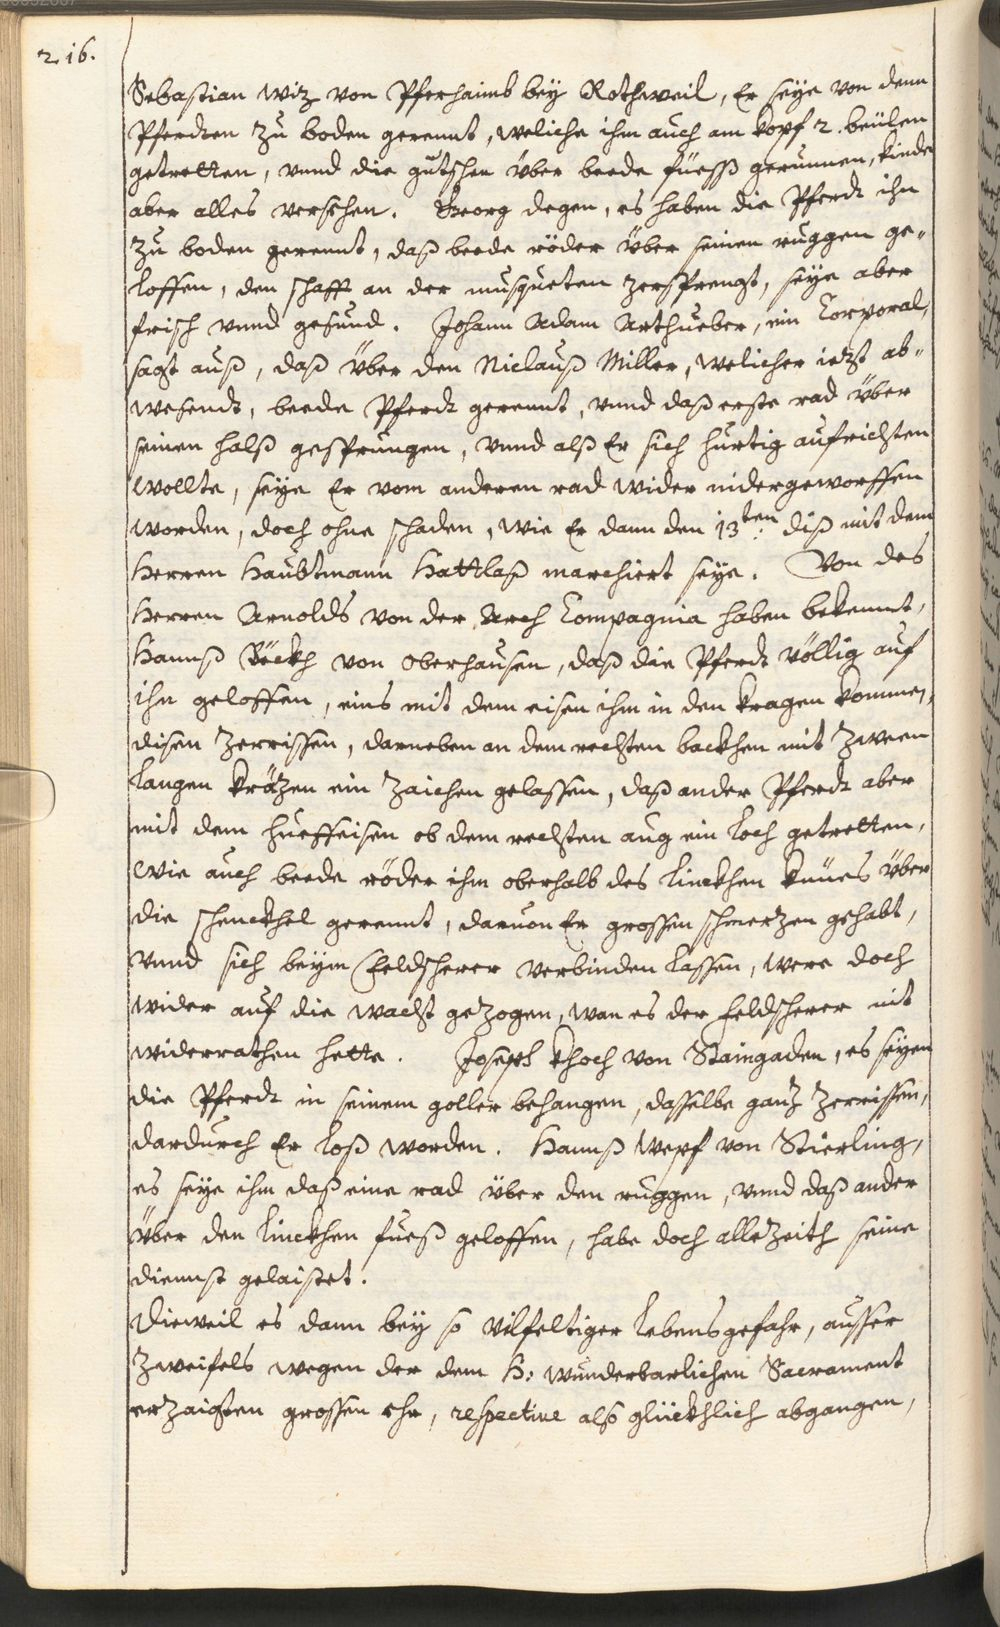 216.
Sebastian Witz von Pforhaimb bey Rothweil, Er seye von denn
Pferdten zu boden gerennt, weliche ihm auch am kopf 2. beülen
getretten, vnnd die gutschen über beede füesß gerunnen, kinde
aber alles versehen. Georg degen, es haben die Pferdt ihn
zu boden gerennt, daß beede röder über seinen ruggen ge„
loffen, den schafft an der musqueten zersprengt, seye aber
frisch vnnd gesund. Johann Adam Arthueber, ein Corporal,
sagt auß, daß über den Niclauß Miller, welicher ietzt ab„
wesendt, beede Pferdt gerennt, vnnd daß erste rad über
seinen halß gesprungen, vnnd alß Er sich hurtig aufrichten
wollte, seye Er vom anderen rad wider nidergeworffen
worden, doch ohne schaden, wie Er dann den 13ten: diß mit dem
Herren Haubtmann Hattlaß marchiert seye. Von des
Herren Arnolds von der Arch Compagnia haben bekennt,
Hannß Böckh von Oberhausen, daß die Pferdt völlig auf
ihn geloffen, eins mit dem eisen ihm in den kragen kommen,
disen zerrissen, darneben an dem rechten backhen mit zween
langen krätzen ein zaichen gelassen, daß ander Pferdt aber
mit dem hueffeisen ob dem rechten aug ein loch getretten,
wie auch beede röder ihm oberhalb des linckhen knües über
die schenckhel gerennt, daruon Er grossen schmertzen gehabt,
vnnd sich beym feldscherer verbinden lassen, were doch
wider auf die wacht gezogen, wan es der feldscherer nit
widerrathen hette. Joseph Khoch von Staingaden, es seyen
die Pferdt in seinem goller behangen, dasselbe gantz zerrissen,
dardurch Er loß worden. Hannß Wepf von Stierling,
es seye ihm daß eine rad über den ruggen, vnnd daß ander
über den linckhen fueß geloffen, habe doch allezeith seine
diennst gelaistet.
Dieweil es dann bey so vilfeltiger lebensgefahr, ausser
zweifels wegen der dem H: wunderbarlichen Sacrament
erzaigten grossen ehr, respectiue also glückhlich abgangen,